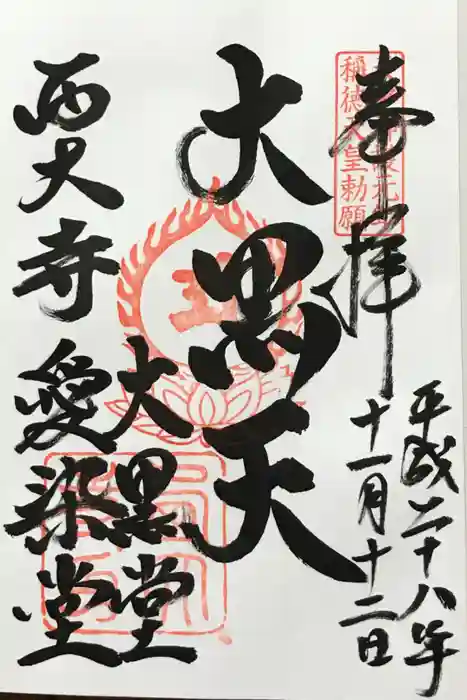 奉拝
平成二十八年
十一月十二日
稱徳天皇勅願
大黒天
大黒堂
西大寺 愛染堂